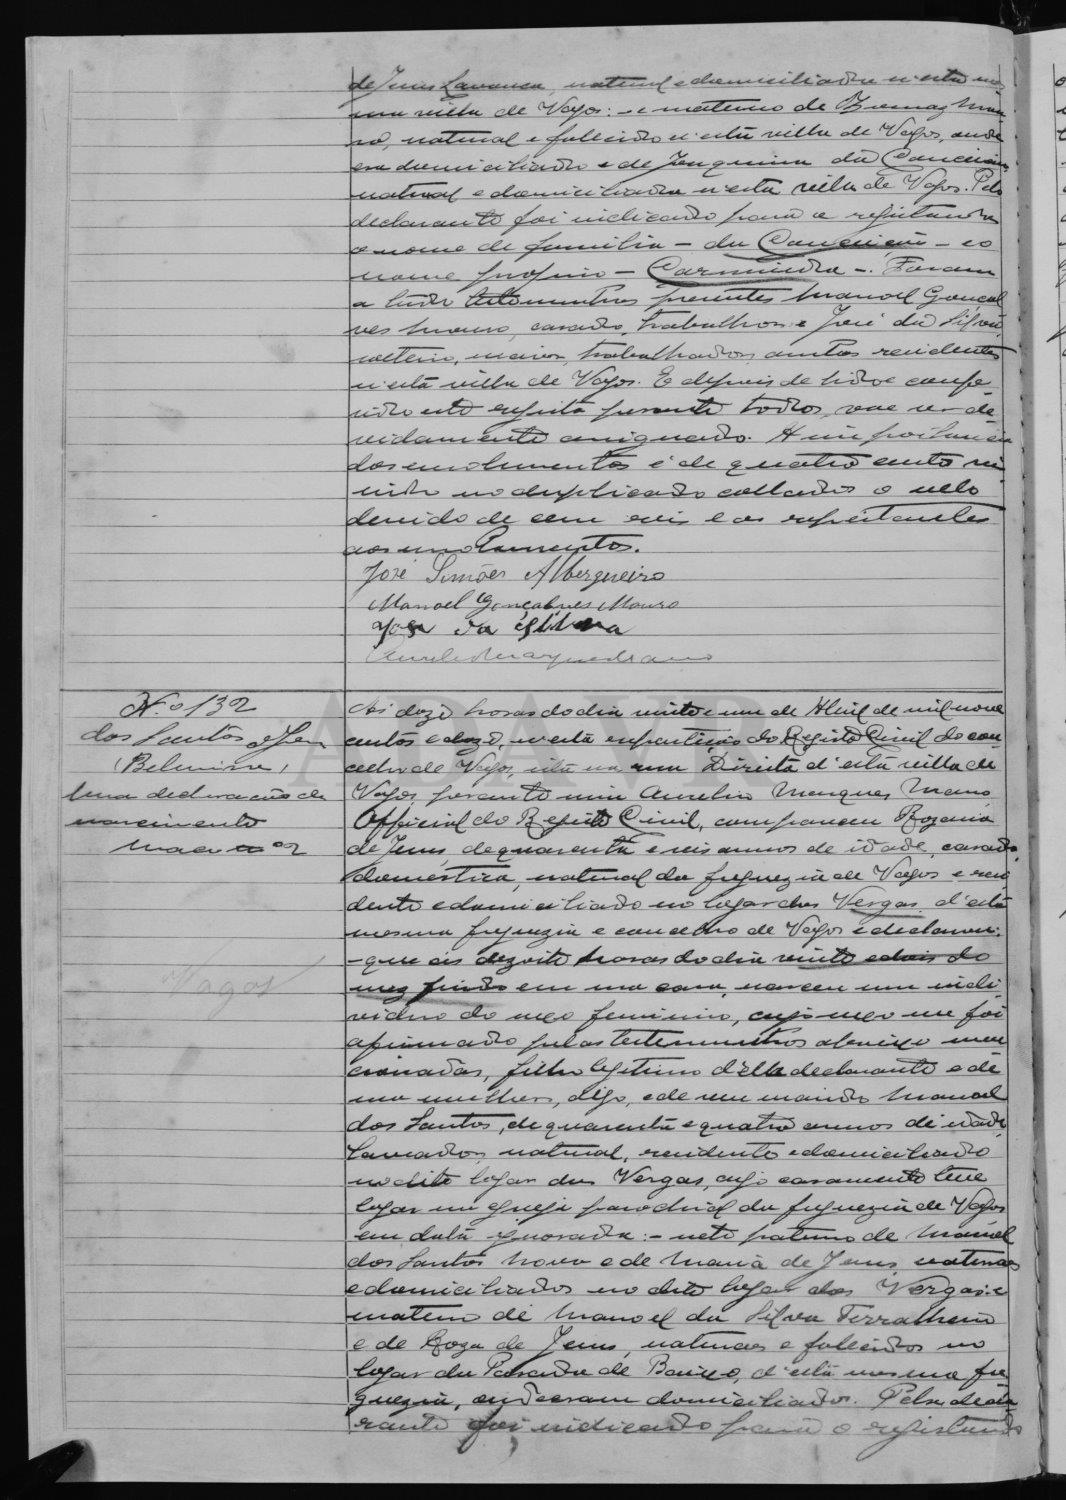 de Jesus Lavoura, natural e domiciliada n'esta mes
ma villa de Vagos: - e materno de Thomaz Mau
ro, natural e fallecido n'esta villa de Vagos, onde
era domiciliado e de Joaquina da Conceição
natural e domiciliada n'esta villa de Vagos. Pelo
declarante foi indicado para a registanda
o nome de familia - da Conceição - e o
nome proprio - Carminda -. Foram
a tudo testemunhas presentes Manoel Gonçal
ves Mauro, casado, trabalhador e José da Silva,
solteiro, maior, trabalhador, ambos residentes
n'esta villa de Vagos. E depois de lido e confe
rido este registo perante todos, vae ser de
vidamente assignado. A importancia
dos emolumentos é de quatro centos reis
indo no duplicado collados o sello
devido de cem reis e os respeitantes
aos emolumentos.
José Simões Albergueiro
Manoel Gonçalves Mauro
José da Silva
Aurelio Marques Mano
N.º 132
dos Santos
(Belmira)
Uma declaração de
nascimento
Vagos
ADAVR
Ás doze horas do dia vinte e um de Abril de mil nove
centos e doze, n'esta repartição do Registo Civil do con
celho de Vagos, sita na rua Direita d'esta villa de
Vagos, perante mim Aurelio Marques Mano
Official do Registo Civil, compareceu Rozaria
de Jesus, de quarenta e seis annos de idade, casada,
domestica, natural da freguezia de Vagos e resi
dente e domiciliado no logar das Vergas, d'esta
mesma freguezia e concelho de Vagos e declarou:
- que ás dezoito horas do dia vinte e dois do
mez findo em sua casa, nasceu um indi
viduo do sexo feminino, cujo sexo me foi
afirmado pelas testemunhas abaixo men
cionadas, filho legitimo d'ella declarante e de
sua mulher, digo, e de seu marido Manoel
dos Santos, de quarenta e quatro annos de idade,
Lavrador, natural, residente e domiciliado
no dito logar das Vergas, cujo casamento teve
logar na egreja parochial da freguezia de Vagos
em data ignorada: - neto paterno de Manoel
dos Santos Novo e de Maria de Jesus, naturaes
e domiciliados no dito logar das Vergas: e
materno de Manoel da Silva
e de Roza de Jesus, naturaes e fallecidos no
logar da Parada de Baixo, d'esta mesma fre
guezia, onde eram domiciliados. Pela decla
rante foi indicado para o registando